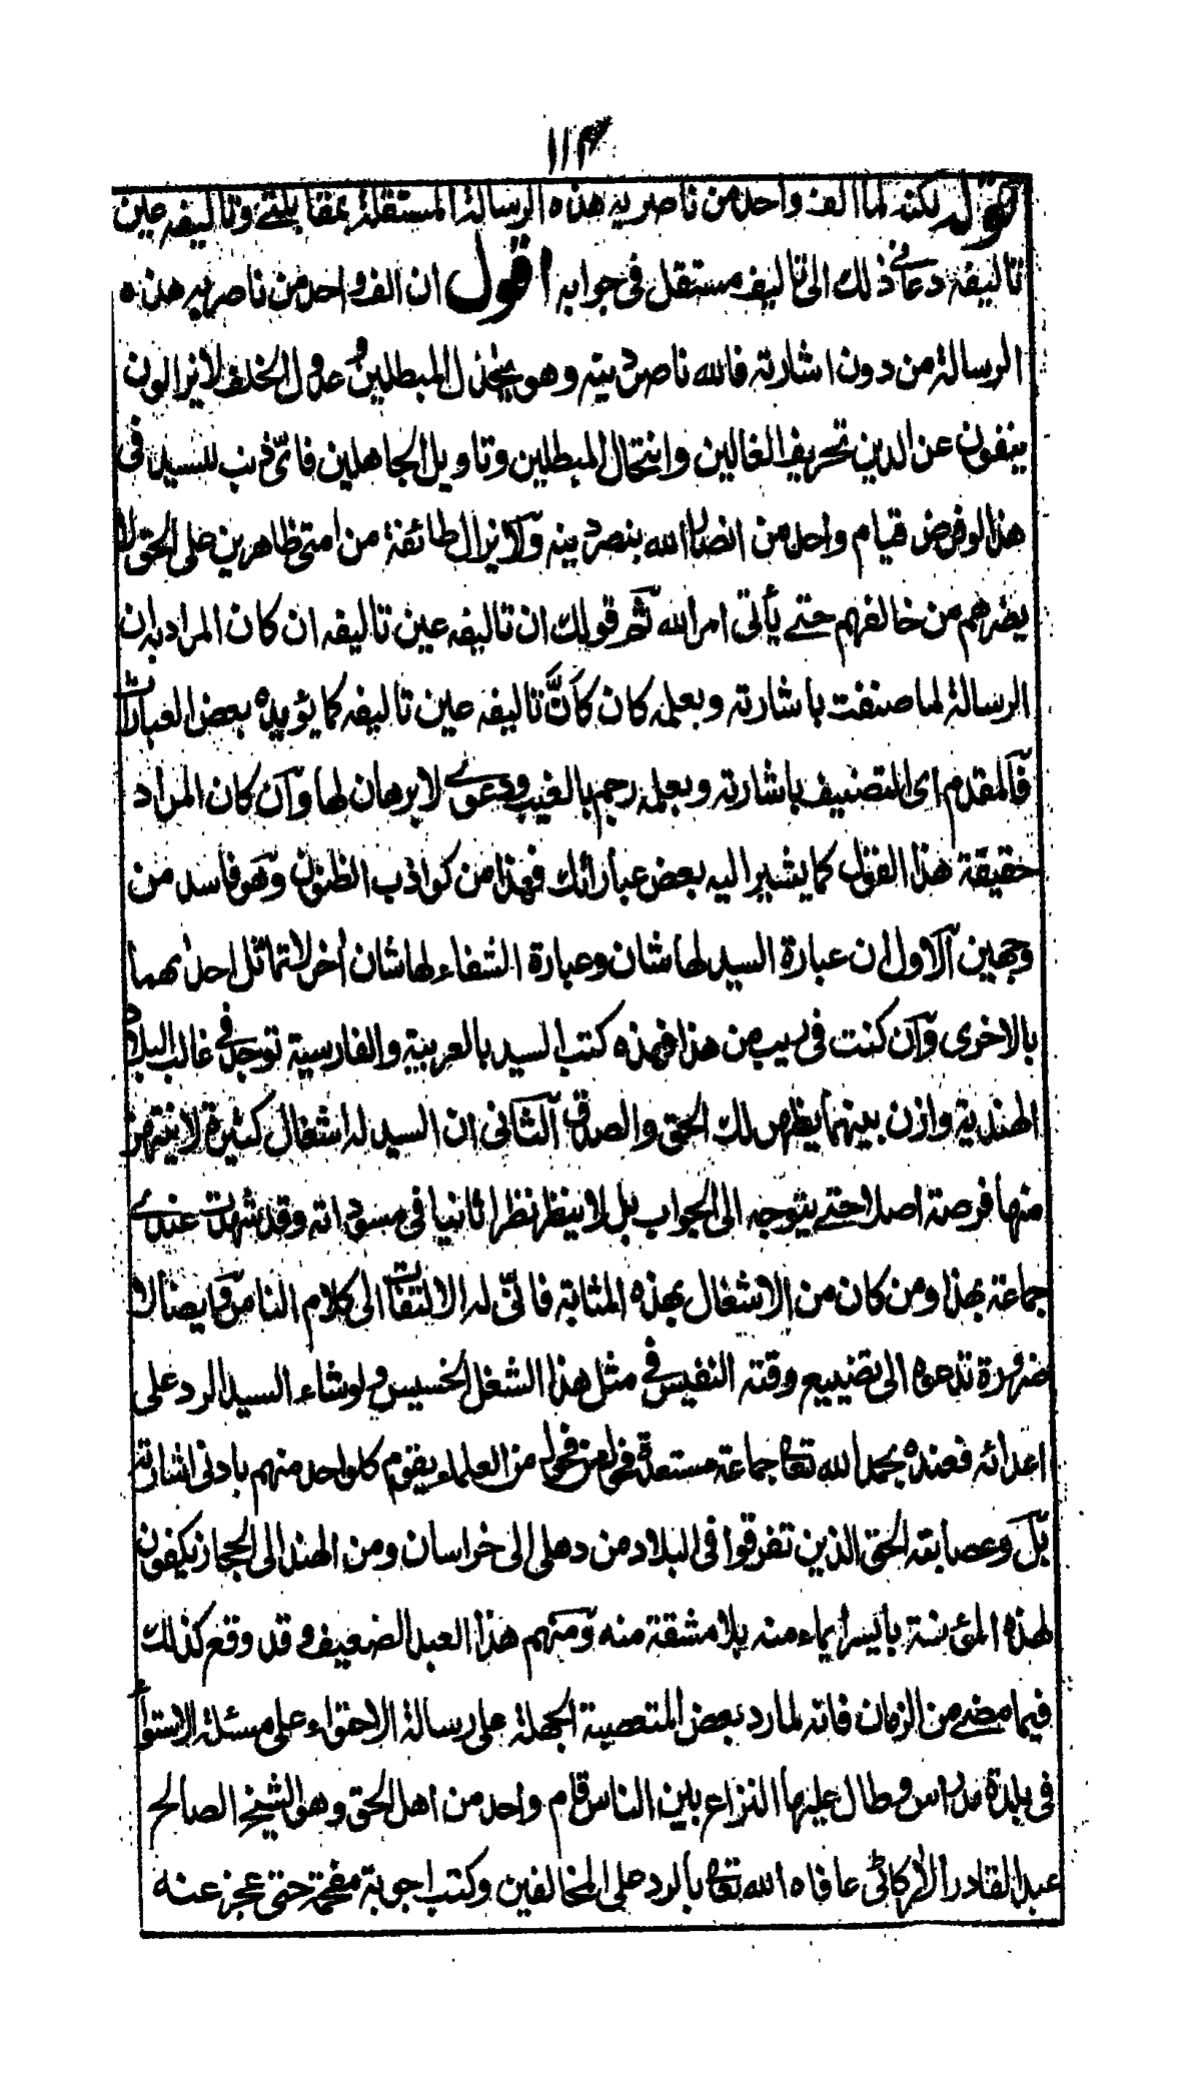 ١١٤
قوله لكنه لما الف واحد من ناصريه هذه الرسالة المستقلة بمقابلتي وتاليفه عين
تاليفه دعاني ذلك الى تاليف مستقل في جوابه اقول ان الف واحد من ناصريه هذه
الرسالة من دون اشارته فالله ناصر دينه وهو يخذل المبطلين وعدول الخلف لا يزالون
ينفون عن الدين تحريف الغالين وانتحال المبطلين وتاويل الجاهلين فاىّ ذنب للسيد فى
هذا لو فرض قيام واحد من انصار الله بنصر دينه ولا يزال طائفة من امتي ظاهرين على الحق لا
يضرهم من خالفهم حتے يأتى امر الله ثم قولك ان تاليفه عين تاليفه ان كان المراد به ان
الرسالة لما صنفت باشارته وبعلمه كان كأنّ تاليفه عين تاليفه كما يؤيده بعض العبارات
فالمقدم اى التصنيف باشارته وبعلمه رجم بالغيب ودعوے لا برهان لها وان كان المراد
حقيقة هذا القول كما يشير اليه بعض عباراتك فهذا من كواذب الظنون وهو فاسد من
وجهين الاول ان عبارة السيد لها شان وعبارة الشفاء لها شان أخر لا تماثل احدٰهما
بالاخرى وان كنت فى ريب من هذا فهذه كتب السيد بالعربية والفارسية توجد في غالب البلاد
الهندية وازن بينهما يظهر لك الحق والصدق الثانى ان السيد له اشغال كثيرة لا ينتهز
منها فرصة اصلا حتے يتوجه الى الجواب بل لا ينظر نظرا ثانيا فى مسوداته وقد شهدت عندے
جماعة بهذا ومن كان من الاشغال بهذه المثابة فانّى له الالتفات الى كلام الناس وايضا لا
ضرورة تدعوه الى تضييع وقته النفيس في مثل هذا الشغل الخسيس ولو شاء السيد الرد على
اعدائه فعنده بحمد الله تعالى جماعة مستعدة من العلماء يقوم كل واحد منهم بادنى اشارته
بل وعصابة الحق الذين تفرقوا فى البلاد من دهلى الى خراسان ومن الهند الى الحجاز يكفون
لهذه المئنة بأيسر ايماء منه بلا مشقة منه ومنهم هذا العبد الضعيف وقد وقع كذلك
فيما مضے من الزمان فانه لما رد بعض المتعصبة الجهلة على رسالة الاحتواء على مسئلة الاستواء
فى بلدة مدراس وطال عليها النزاع بين الناس قام واحد من اهل الحق وهو الشيخ الصالح
عبد القادر الاركاٹى عافاه الله تعالى بالرد على المخالفين وكتب اجوبة مفحمة حتى عجز عنه